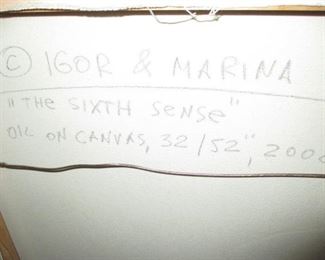 © IGOR & MARINA
"THE SIXTH SENSE"
OIL ON CANVAS, 32/52",